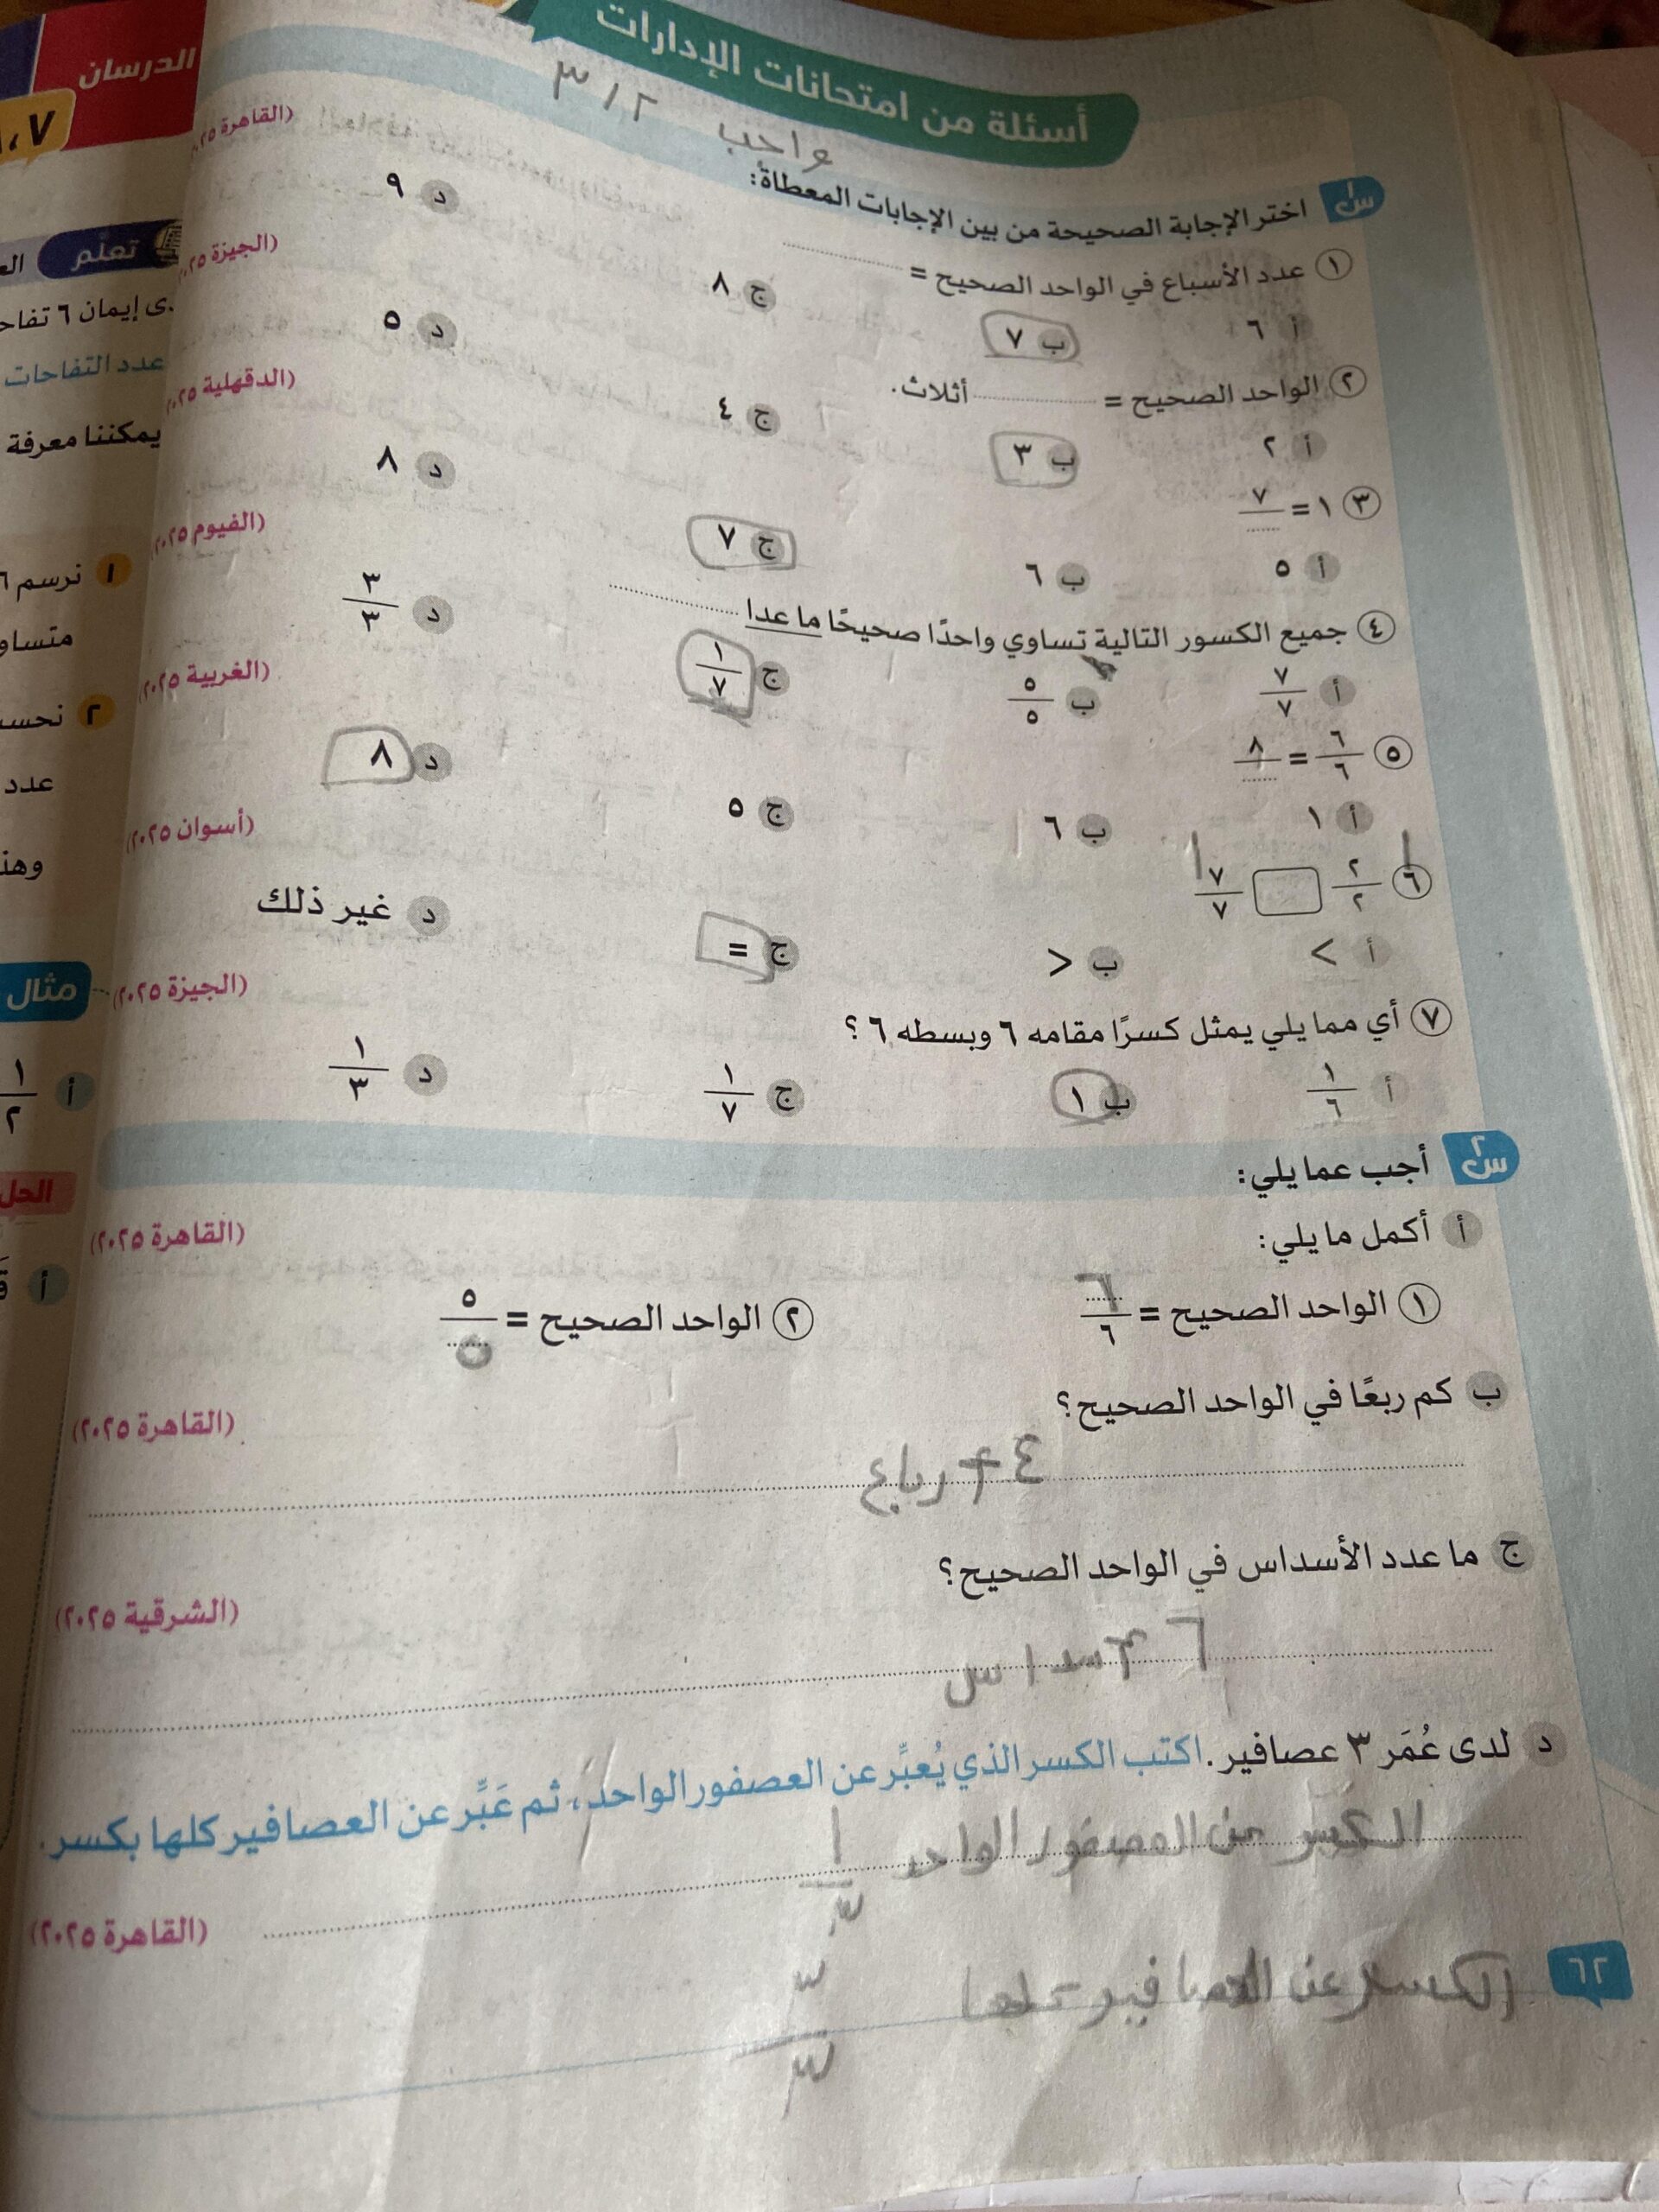 أسئلة من امتحانات الإدارات
واجب ٣/٢
س١ اختر الإجابة الصحيحة من بين الإجابات المعطاة:
١ عدد الأسباع في الواحد الصحيح = .......... (القاهرة ٢٠٢٥)
أ ٦ ب ٧ ج ٨ د ٩
٢ الواحد الصحيح = .......... أثلاث. (الجيزة ٢٠٢٥)
أ ٢ ب ٣ ج ٤ د ٥
٣ ١ = ٧/..... (الدقهلية ٢٠٢٥)
أ ٥ ب ٦ ج ٧ د ٨
٤ جميع الكسور التالية تساوي واحدًا صحيحًا ما عدا .......... (الفيوم ٢٠٢٥)
أ ٧/٧ ب ٥/٥ ج ١/٧ د ٣/٣
٥ ٦/٦ = ٨/..... (الغربية ٢٠٢٥)
أ ١ ب ٦ ج ٥ د ٨
٦ ٢/٢ □ ٧/٧ (أسوان ٢٠٢٥)
أ > ب < ج = د غير ذلك
٧ أي مما يلي يمثل كسرًا مقامه ٦ وبسطه ٦ ؟ (الجيزة ٢٠٢٥)
أ ١/٦ ب ١ ج ١/٧ د ١/٣
س٢ أجب عما يلي:
أ أكمل ما يلي: (القاهرة ٢٠٢٥)
١ الواحد الصحيح = ٦/٦ ٢ الواحد الصحيح = ٥/٥
ب كم ربعًا في الواحد الصحيح؟ (القاهرة ٢٠٢٥)
٤ أرباع
ج ما عدد الأسداس في الواحد الصحيح؟ (الشرقية ٢٠٢٥)
٦ أسداس
د لدى عُمَر ٣ عصافير. اكتب الكسر الذي يُعبِّر عن العصفور الواحد، ثم عَبِّر عن العصافير كلها بكسر.
الكسر عن العصفور الواحد ١/٣ (القاهرة ٢٠٢٥)
الكسر عن العصافير كلها ٣/٣
٦٢
الدرسان
تعلَّم
عدد التفاحات
يمكننا معرفة
١ نرسم ٦
٢
عدد
مثال
أ ١/٢
الحل
أ